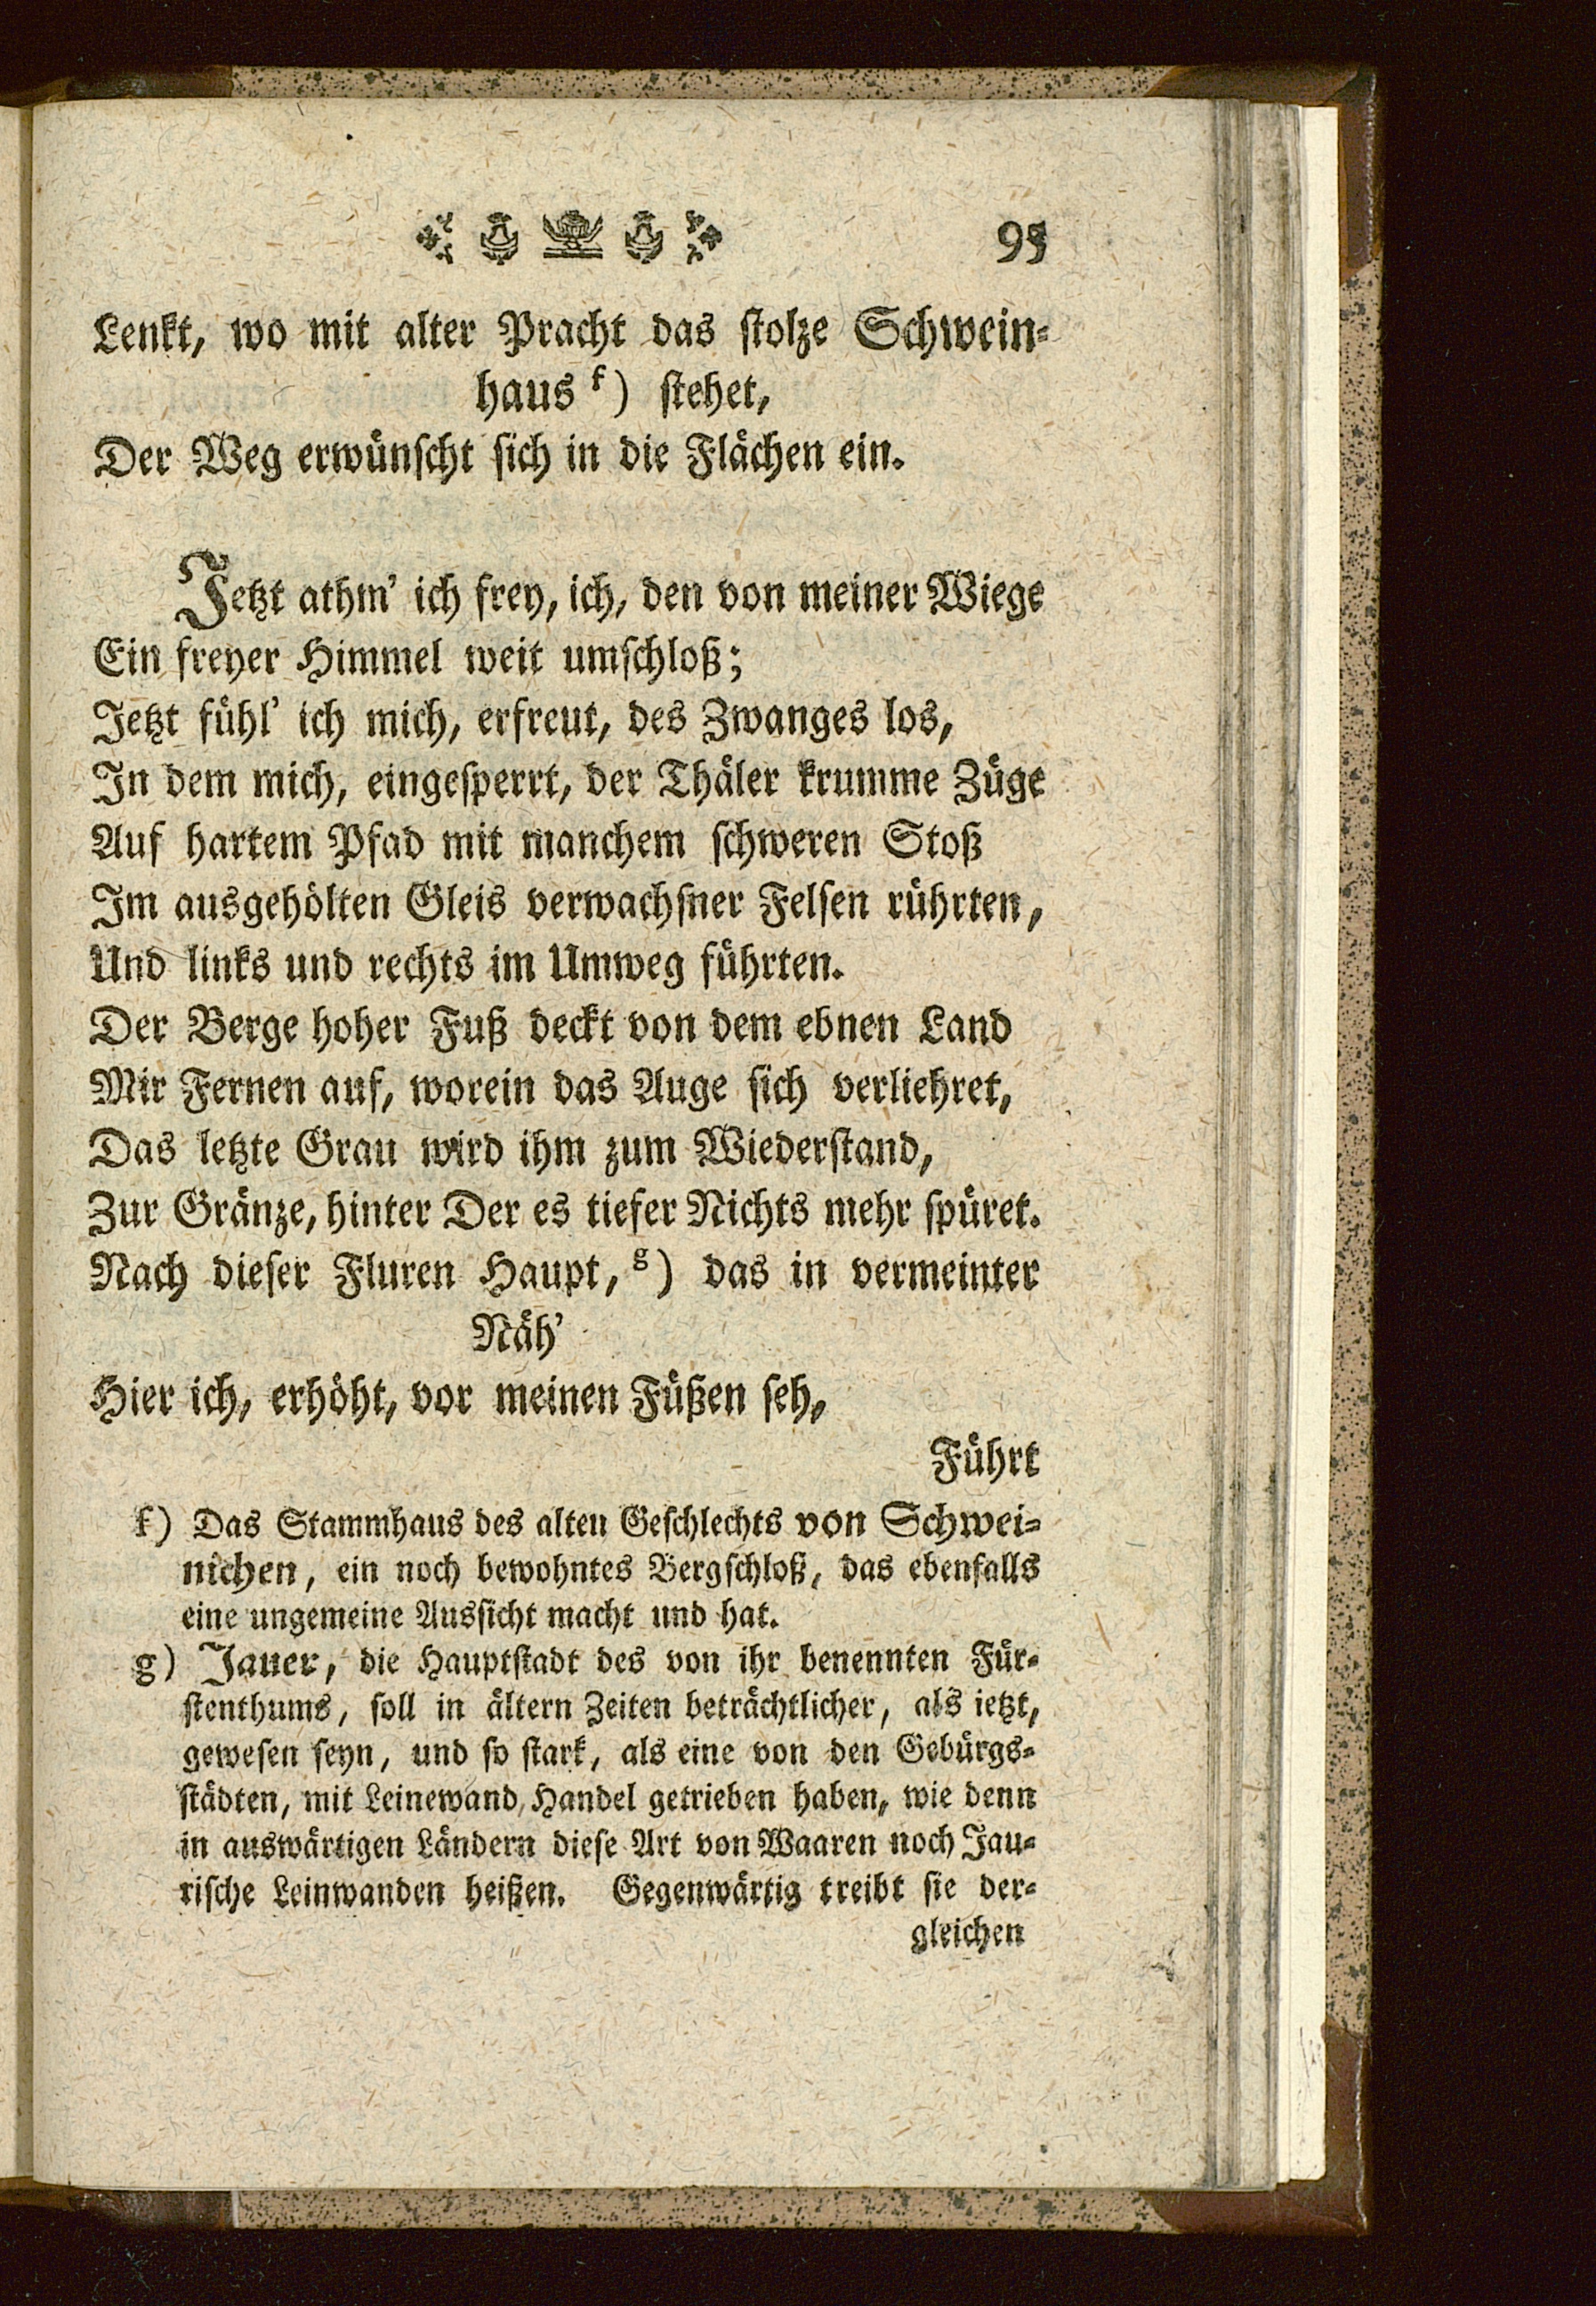 95
Lenkt, wo mit alter Pracht das stolze Schwein⸗
haus f) stehet,
Der Weg erwünscht sich in die Flächen ein.
Jetzt athm' ich frey, ich, den von meiner Wiege
Ein freyer Himmel weit umschloß;
Jetzt fühl' ich mich, erfreut, des Zwanges los,
In dem mich, eingesperrt, der Thäler krumme Züge
Auf hartem Pfad mit manchem schweren Stoß
Im ausgehölten Gleis verwachsner Felsen rührten,
Und links und rechts im Umweg führten.
Der Berge hoher Fuß deckt von dem ebnen Land
Mir Fernen auf, worein das Auge sich verliehret,
Das letzte Grau wird ihm zum Wiederstand,
Zur Gränze, hinter Der es tiefer Nichts mehr spüret.
Nach dieser Fluren Haupt, g) das in vermeinter
Näh'
Hier ich, erhöht, vor meinen Füßen seh,
Führt
f) Das Stammhaus des alten Geschlechts von Schwei⸗
nichen, ein noch bewohntes Bergschloß, das ebenfalls
eine ungemeine Aussicht macht und hat.
g) Jauer, die Hauptstadt des von ihr benennten Für⸗
stenthums, soll in ältern Zeiten beträchtlicher, als ietzt,
gewesen seyn, und so stark, als eine von den Gebürgs⸗
städten, mit Leinewand, Handel getrieben haben, wie denn
in auswärtigen Ländern diese Art von Waaren noch Jau⸗
rische Leinwanden heißen. Gegenwärtig treibt sie der⸗
gleichen